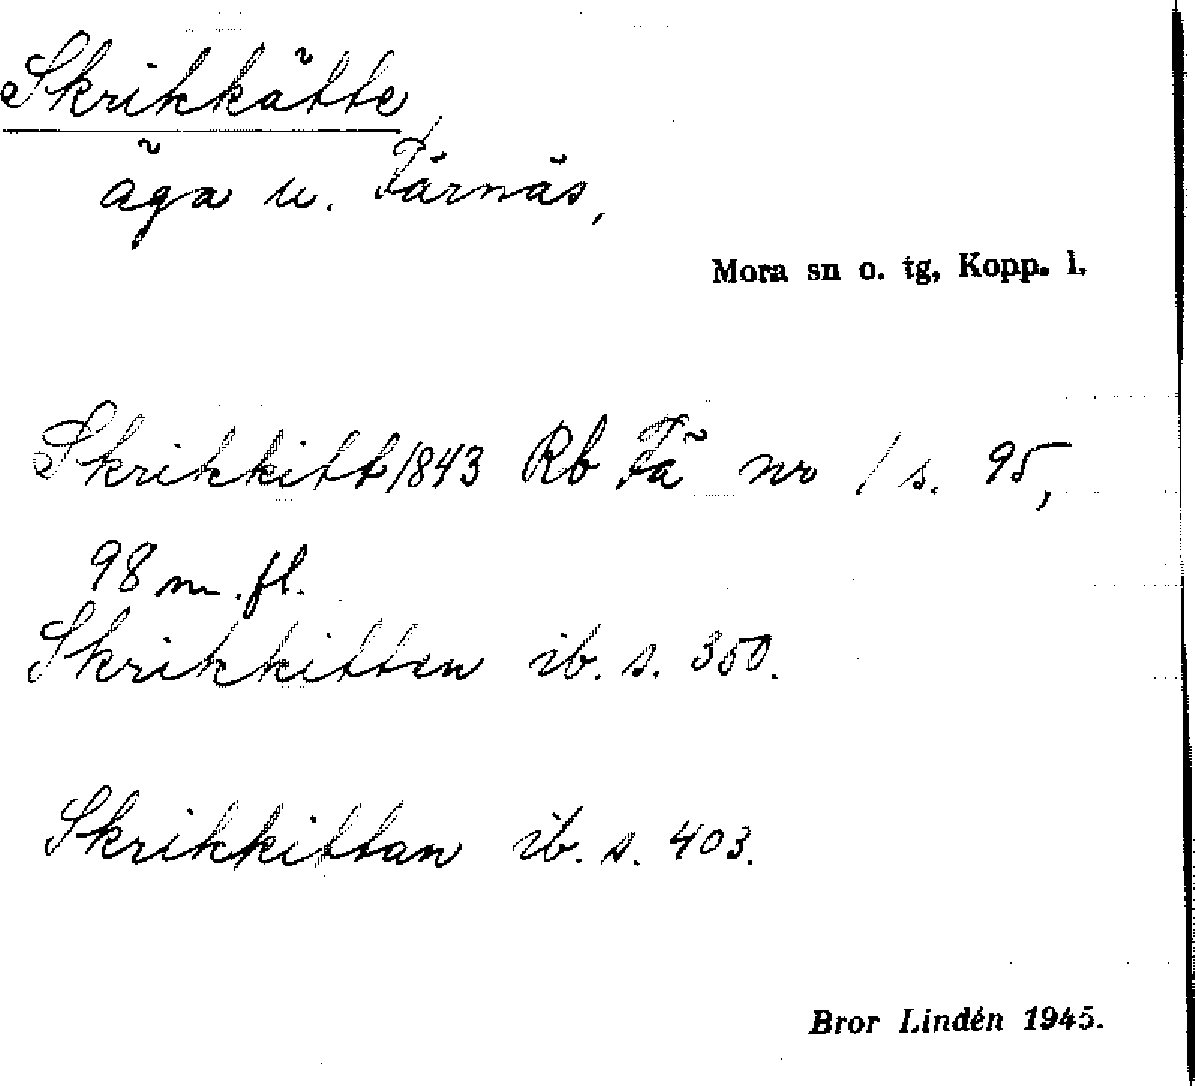 Skrikkätte
äga u. Färnäs,
Mora sn o. tg, Kopp. l.
Skrikkitt 1843 Rb Fä nr 1 s. 95,
98 m. fl.
Skrikkitten ib. s. 350.
Skrikkittan ib. s. 403.
Bror Lindén 1945.